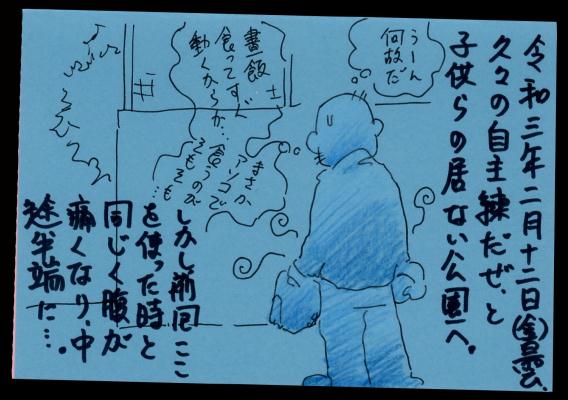 令和三年二月十二日(金)曇、
久々の自主練だぜ、と
子供らの居ない公園へ。
うーん
何故だ
昼飯
食ってすぐ
動くからか…
まさか
アソコで
食うのが
そもそも…
しかし前回ここ
を使った時と
同じく腹が
痛くなり、中
途半端に…。